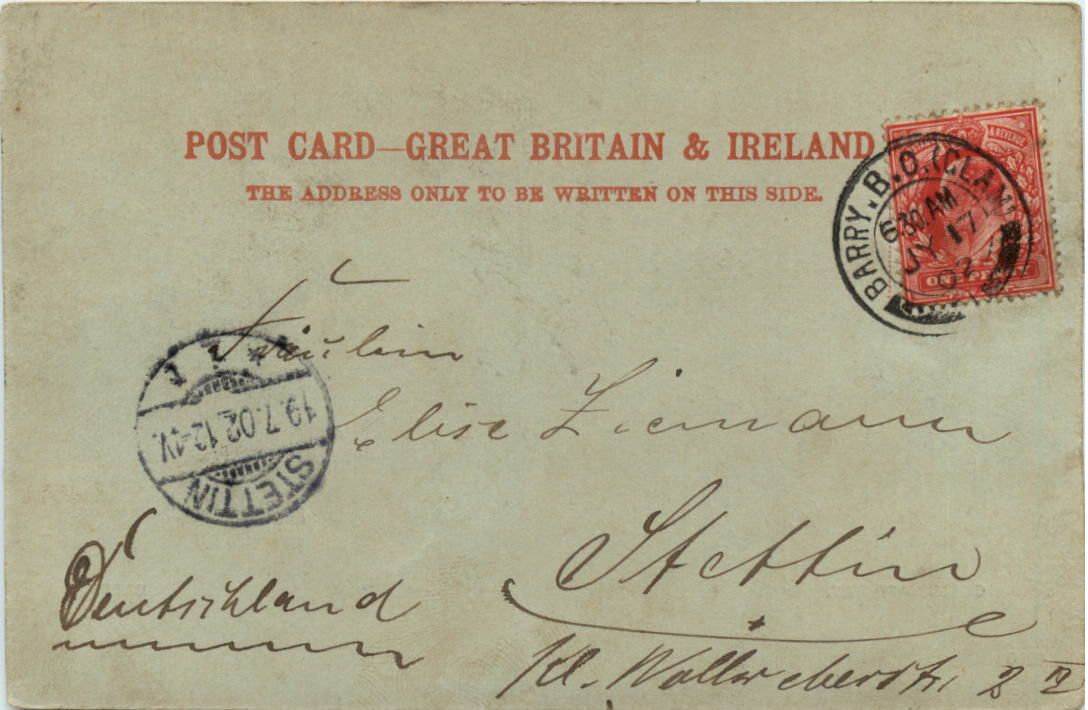 POST CARD—GREAT BRITAIN & IRELAND
THE ADDRESS ONLY TO BE WRITTEN ON THIS SIDE.
& REVENUE
BARRY.B.O.(GLAM
6 30 AM
JY 17
02
Fräulein
Elise Ziemann
Stettin
19.7.02.12-1V.
STETTIN
Deutschland
Kl. Wollweberstr. 2 II